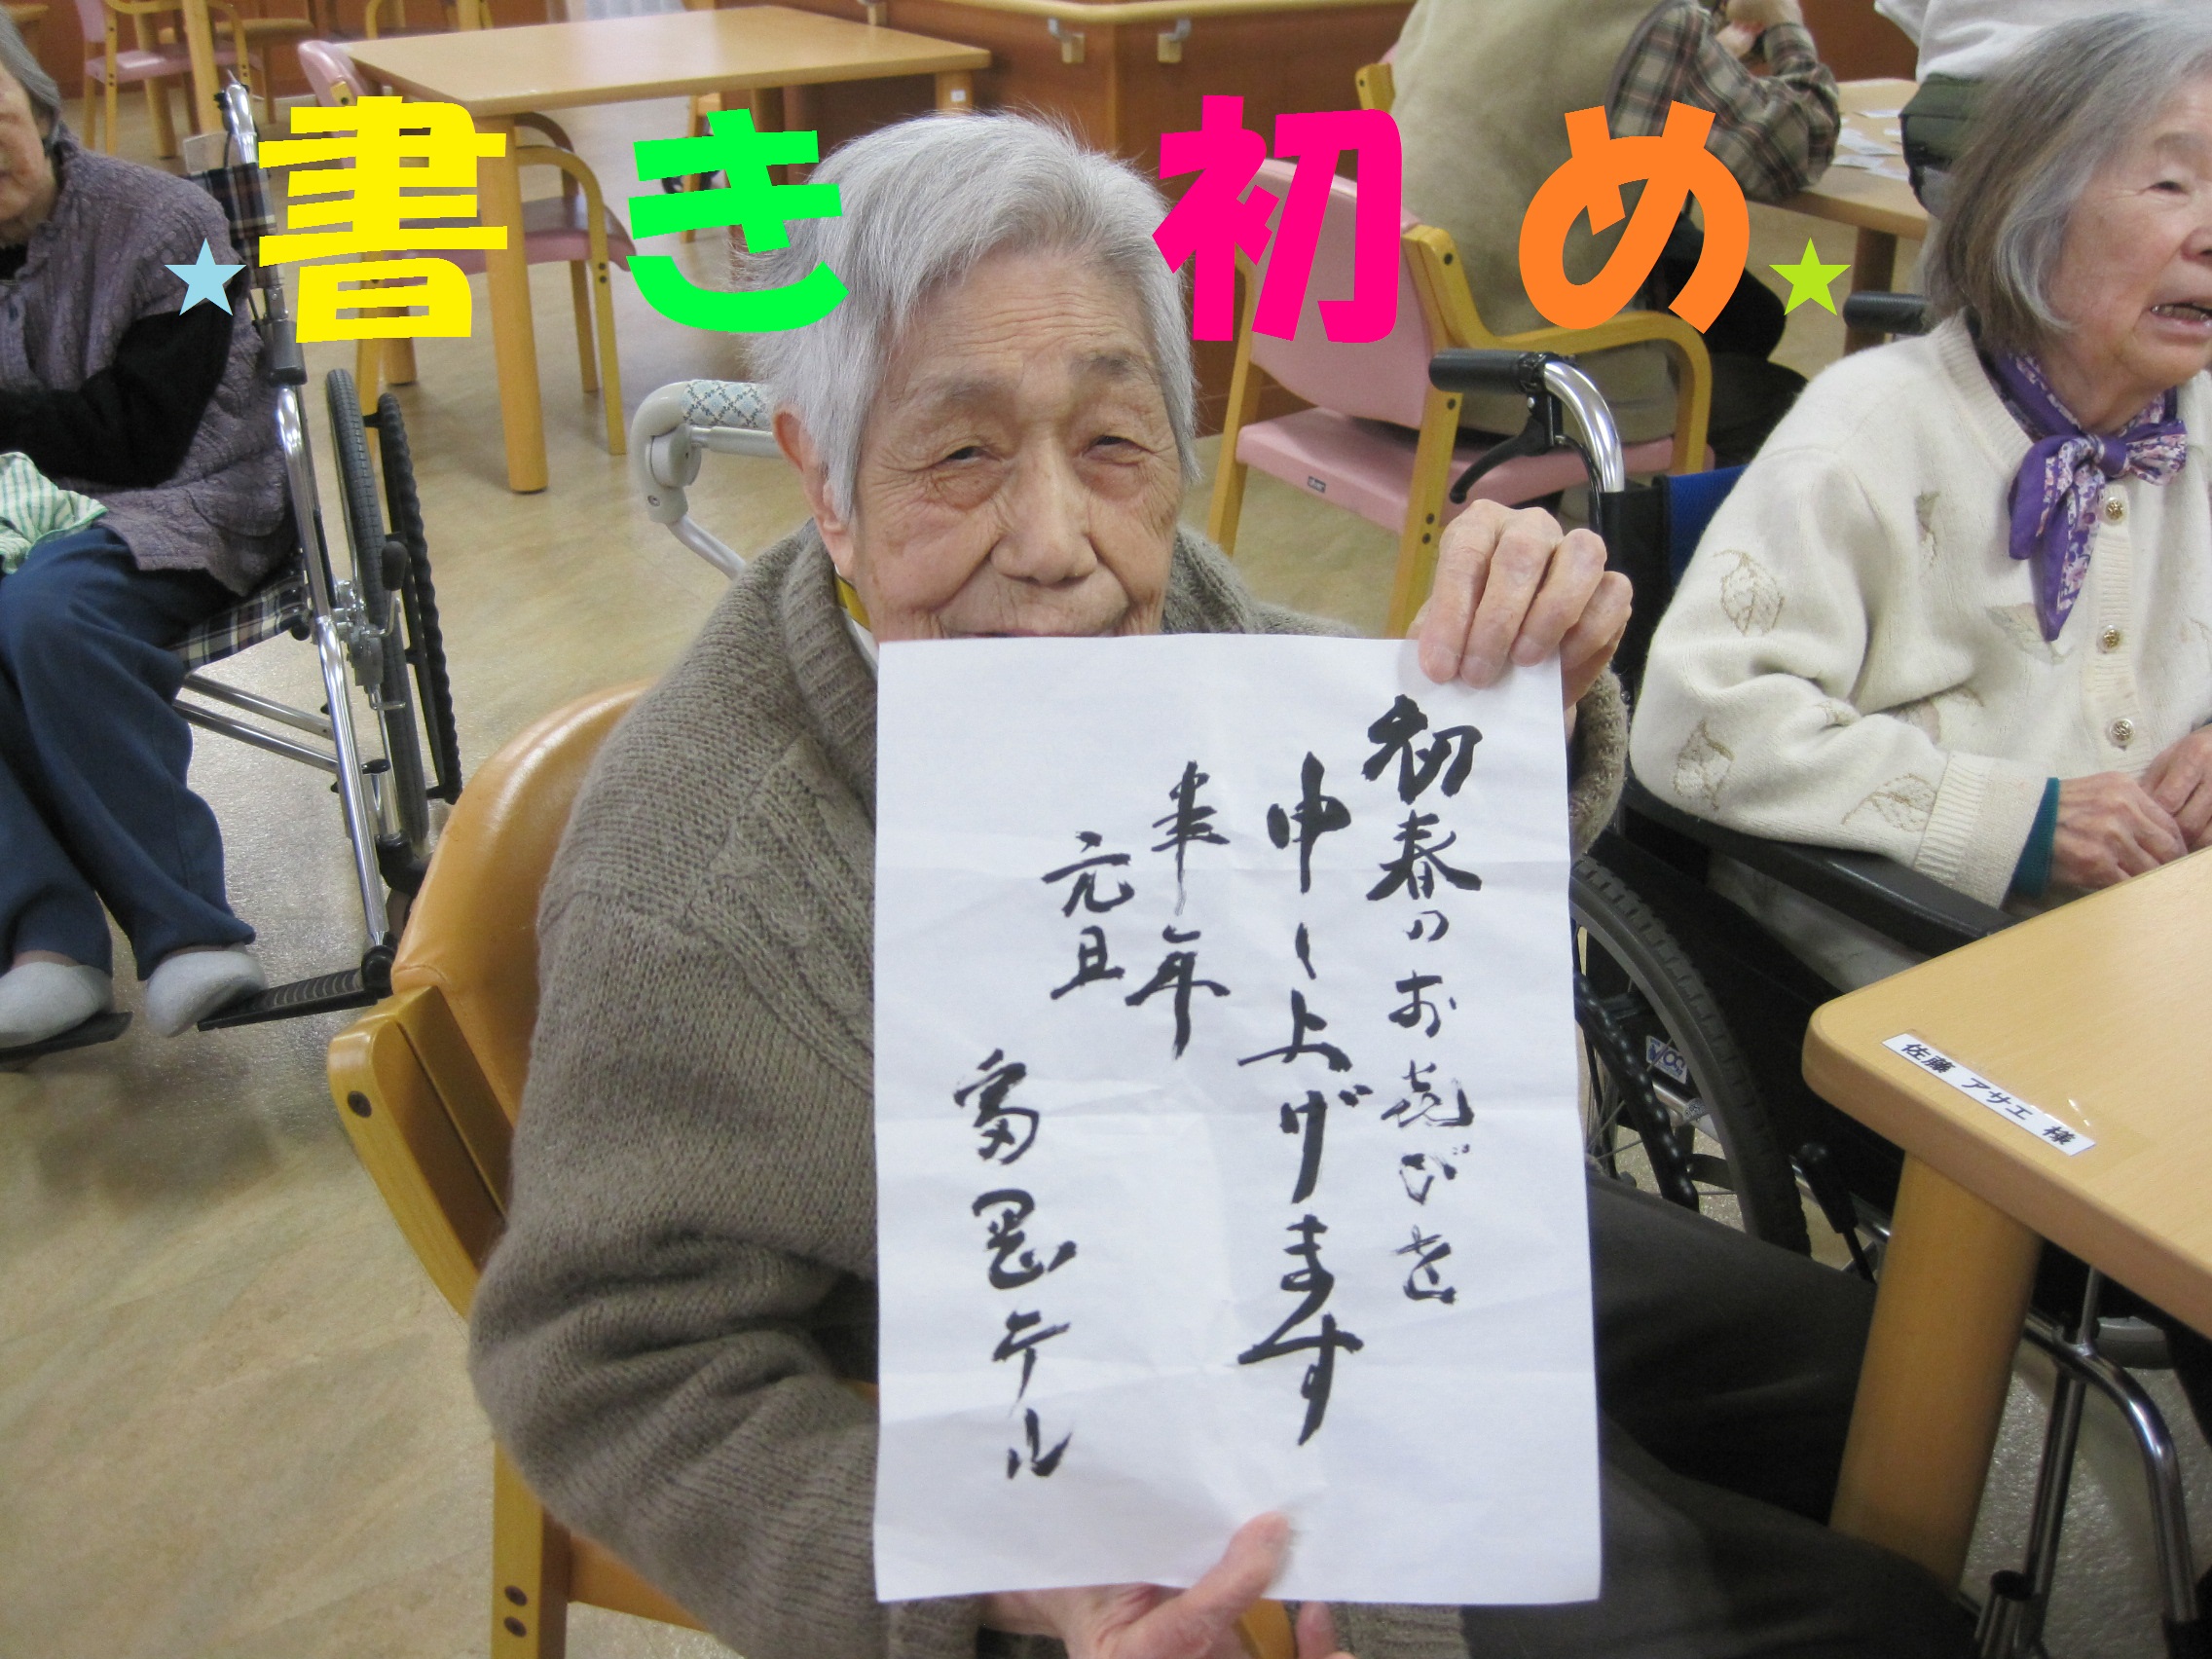 ★書き初め★
初春のお喜びを
申し上げます
羊年
元旦
富岡テル
佐藤 アサエ 様